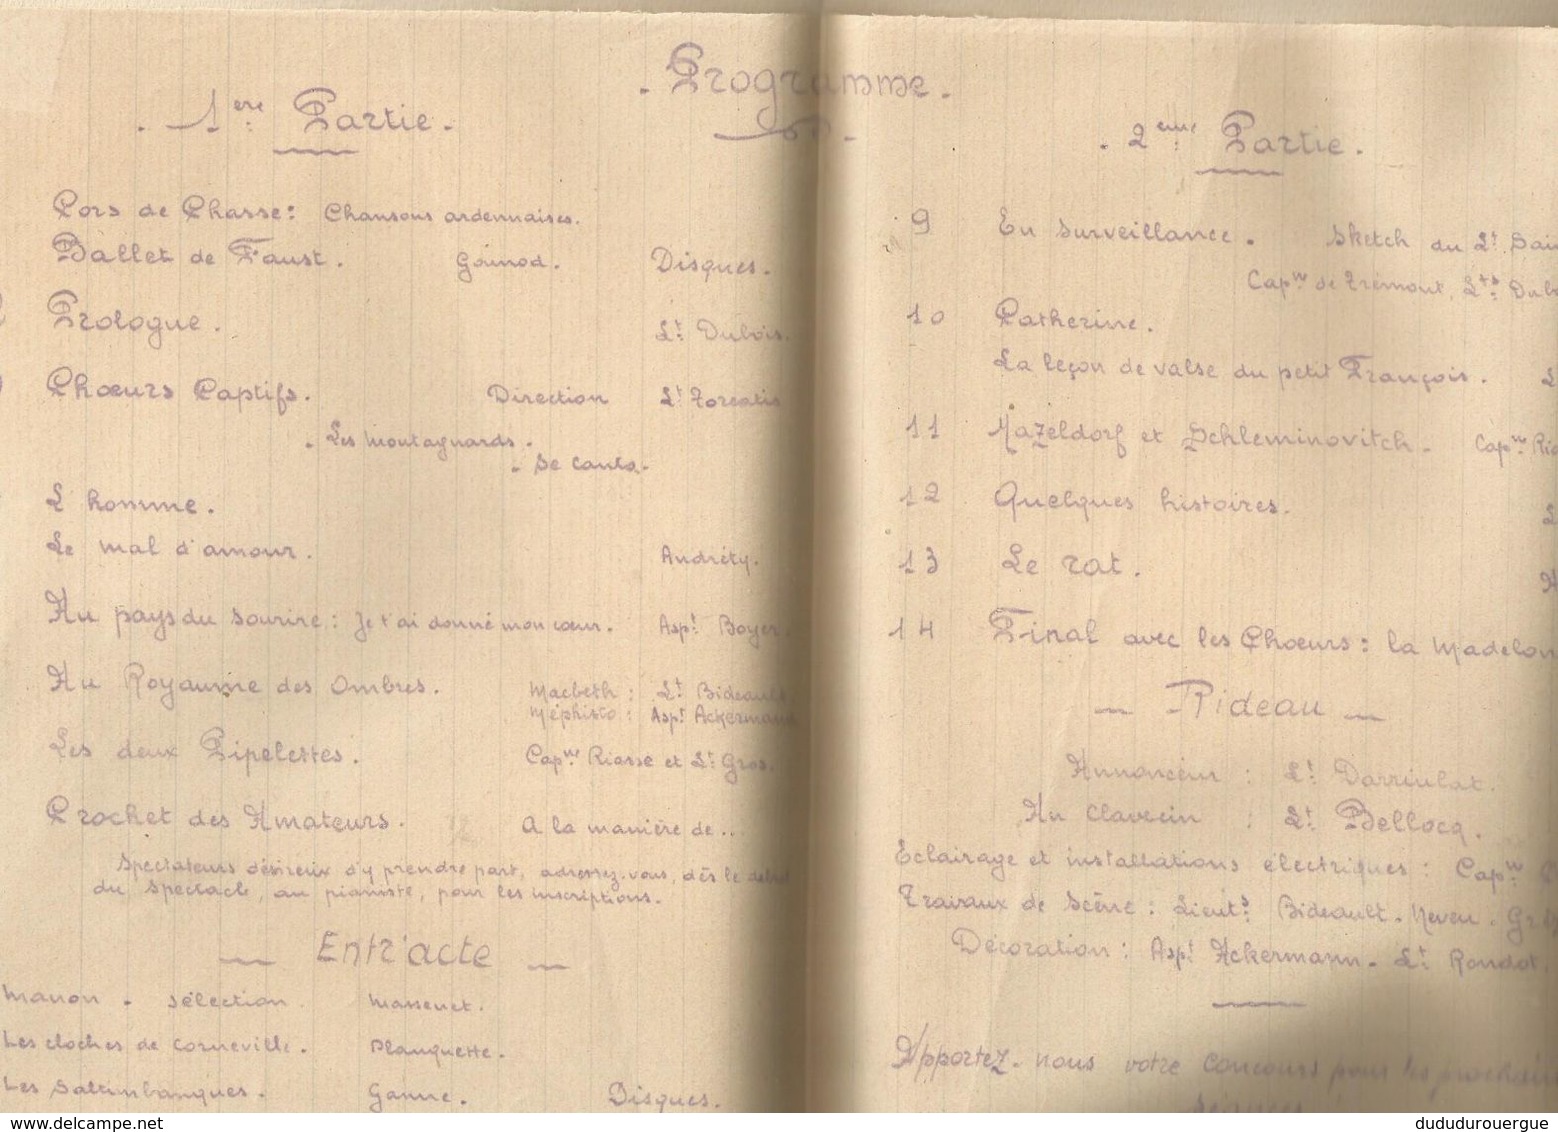 . Programme .
. 1ère Partie .
Cors de Chasse : Chansons ardennaises.
Ballet de Faust . Gounod. Disques.
Prologue . Lt Dubois.
Chœurs Captifs. Direction Lt Forcatis
. Les montagnards .
. Se Canto .
L'homme .
Le mal d'amour . Andréty.
Au pays du sourire : Je t'ai donné mon cœur. Aspt Boyer.
Au Royaume des Ombres. Macbeth : Lt Bideault
Méphisto : Aspt Ackermann
Les deux Pipelettes. Capne Riasse et Lt Gros.
Crochet des Amateurs. A la manière de...
Spectateurs désireux d'y prendre part, adressez-vous, dès le début
du spectacle, au pianiste, pour les inscriptions.
Entr'acte
Manon - sélection. Massenet.
Les cloches de Corneville. Planquette.
Les Saltimbanques. Ganne. Disques.
. 2eme Partie .
9 En surveillance . Sketch du Lt
Capne de Trémont, Lts
10 Catherine.
La leçon de valse du petit François.
11 Mazeldorf et Schleminovitch - Capne
12 Quelques histoires.
13 Le rat.
14 Final avec les Chœurs : la Madelon
Rideau
Annonceur : Lt Darriulat.
Au clavecin : Lt Bellocq.
Eclairage et installations électriques : Capne
Travaux de Scène : Lieuts Bideault - Neveu -
Décoration : Aspt Ackermann - Lt Rondot.
Apportez-nous votre concours pour les prochaines
séances
www.delcampe.net
dududurouergue